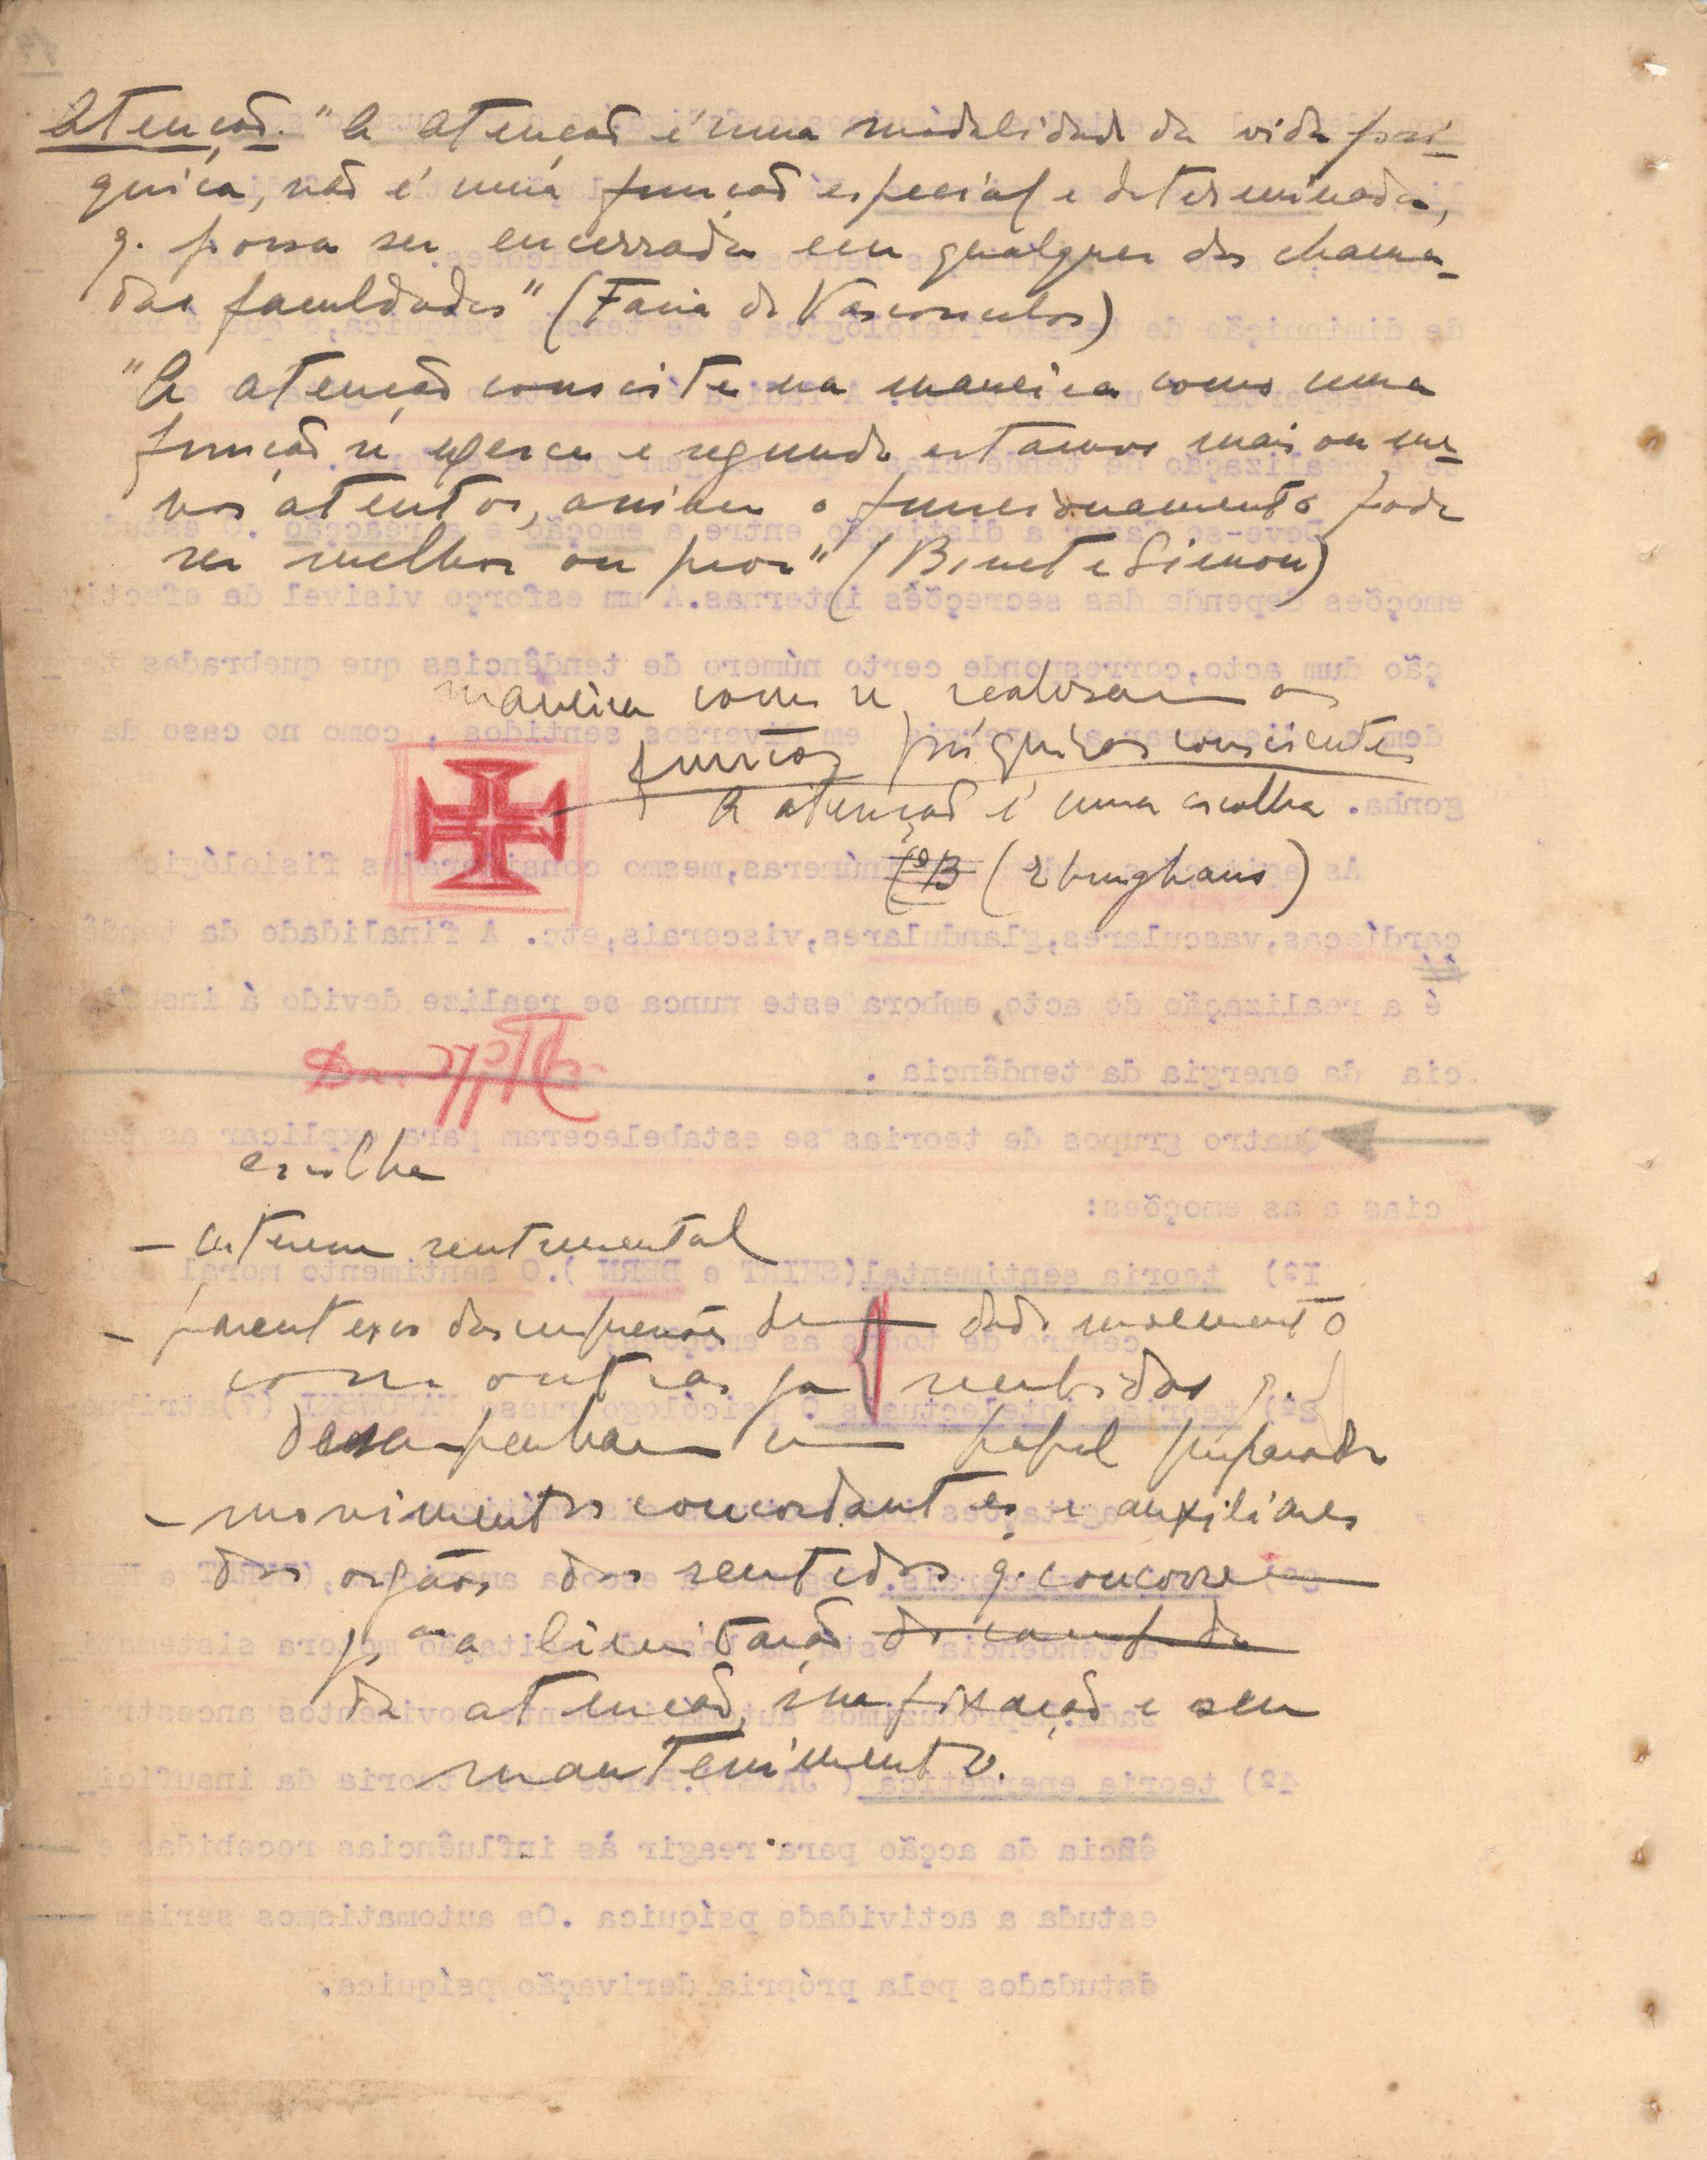 Atenção. "A atenção é uma modalidade da vida psí-
quica, não é uma função especial e determinada,
q. possa ser encerrada em qualquer das chama-
das faculdades" (Faria de Vasconcelos)
"A atenção consiste na maneira como uma
função se exerce e segundo estamos mais ou me-
nos atentos, assim o funcionamento pode
ser melhor ou pior" (Binet e Simon)
maneira como se realisam as
funções psíquicas conscientes
A atenção é uma escolha
(Ebinghaus)
escolha
- interesse sentimental
- parentesco das impressões de dado momento
com outras já recebidas q.
desempenham um papel preparador
- movimentos concordantes e auxiliares
dos orgãos dos sentidos q. concorrem
p.ª a limitação do campo da
da atenção, sua fixação e seu
mantenimento.